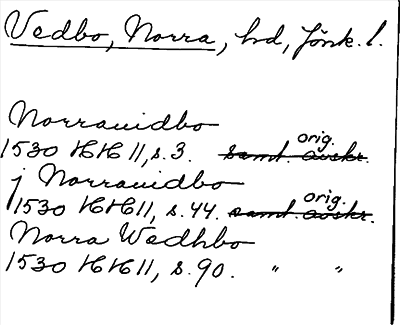 Vedbo, Norra, hd, Jönk. l.
Norrauidbo
1530 HH 11, s. 3. samt. avskr. orig.
j Norrauidbo
1530 HH 11, s. 44. samt. avskr. orig.
Norra Wedhbo
1530 HH 11, s. 90. " "